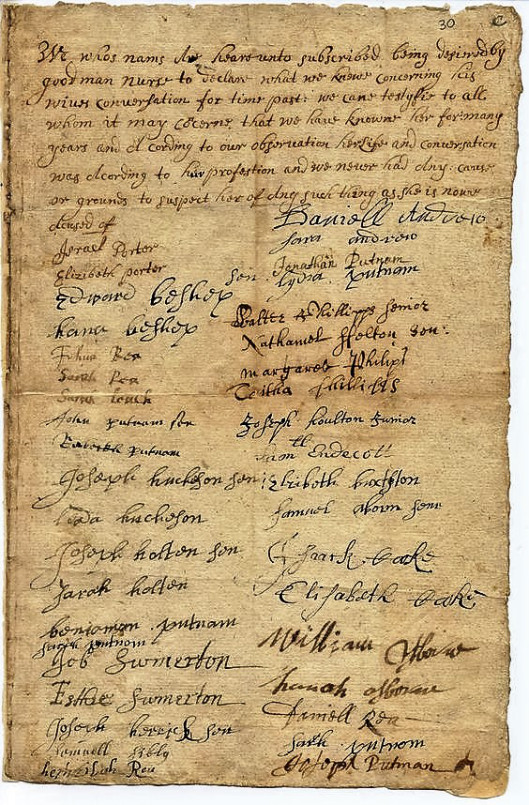 30
We whos nams Are heareunto subscribed being desiered by
goodman nurse to declare what we knowe concerning his
wives conversation for time past: we cane testyfie to all
whom it may cocerne that we have knowne her for many
years and Acording to our observation her life and conversation
was Acording to hur profestion and we never had Any: cause
or grounds to suspect her of Any such thing as she is nowe
Acused of
Israel Porter
Elizibeth porter
Edward beshep sen
hana beshep
Joshua Rea
Sarah Rea
Sarah leach
John putnam sen
Rebecah putnam
Joseph hucheson sen
lida hucheson
Joseph holten sen
Sarah holten
benjaman putnam
sarah putnam
Job Swinerton
Esther Swinerton
Joseph herrick sen
Samuell sibly
hephzibah Rea
Daniell Andrew
sara andrew
Jonathan Putnam
lydia putnam
Walter Phillipps senior
Nathaniel ffelton sen:
margaret Philips
Tabitha phillipps
Joseph houlton Junior
Samll Endecott
Elizibeth buxston
samuel aborn senr
Isaack Cooke
Elisabeth Cooke
William Osborne
hanah osborne
Daniell Rea
sarah putnam
Joseph Putman